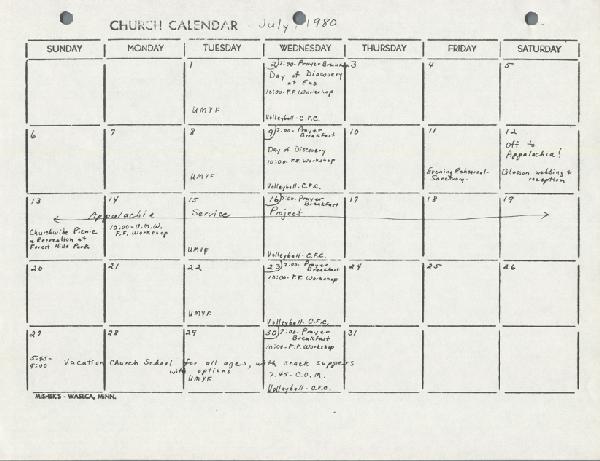 CHURCH CALENDAR July, 1980
SUNDAY MONDAY TUESDAY WEDNESDAY THURSDAY FRIDAY SATURDAY
1
UMYF
2 7:00-Prayer Breakfast
Day of Discovery
10:00-F.F. Workshop
Volleyball-C.F.C.
3
4
5
6
7
8
UMYF
9 7:00-Prayer
Breakfast
Day of Discovery
10:00-F.F. Workshop
Volleyball-C.F.C.
10
11
Evening Rehearsal-
Sanctuary
12
Off to
Appalachia!
wedding &
reception
13
Appalachia Service Project
Churchwide Picnic
& Recreation at
Forest Hills Park
14
10:00-U.M.W.
F.F. Workshop
15
UMYF
16 7:00-Prayer
Breakfast
Volleyball-C.F.C.
17
18
19
20
21
22
UMYF
23 7:00-Prayer
Breakfast
10:00-F.F. Workshop
Volleyball-C.F.C.
24
25
26
27
28
29
UMYF
30 7:00-Prayer
Breakfast
10:00-F.F. Workshop
7:45-C.O.M.
Volleyball-C.F.C.
31
Vacation Church School for all ages, with snack suppers
with options
WASECA, MINN.